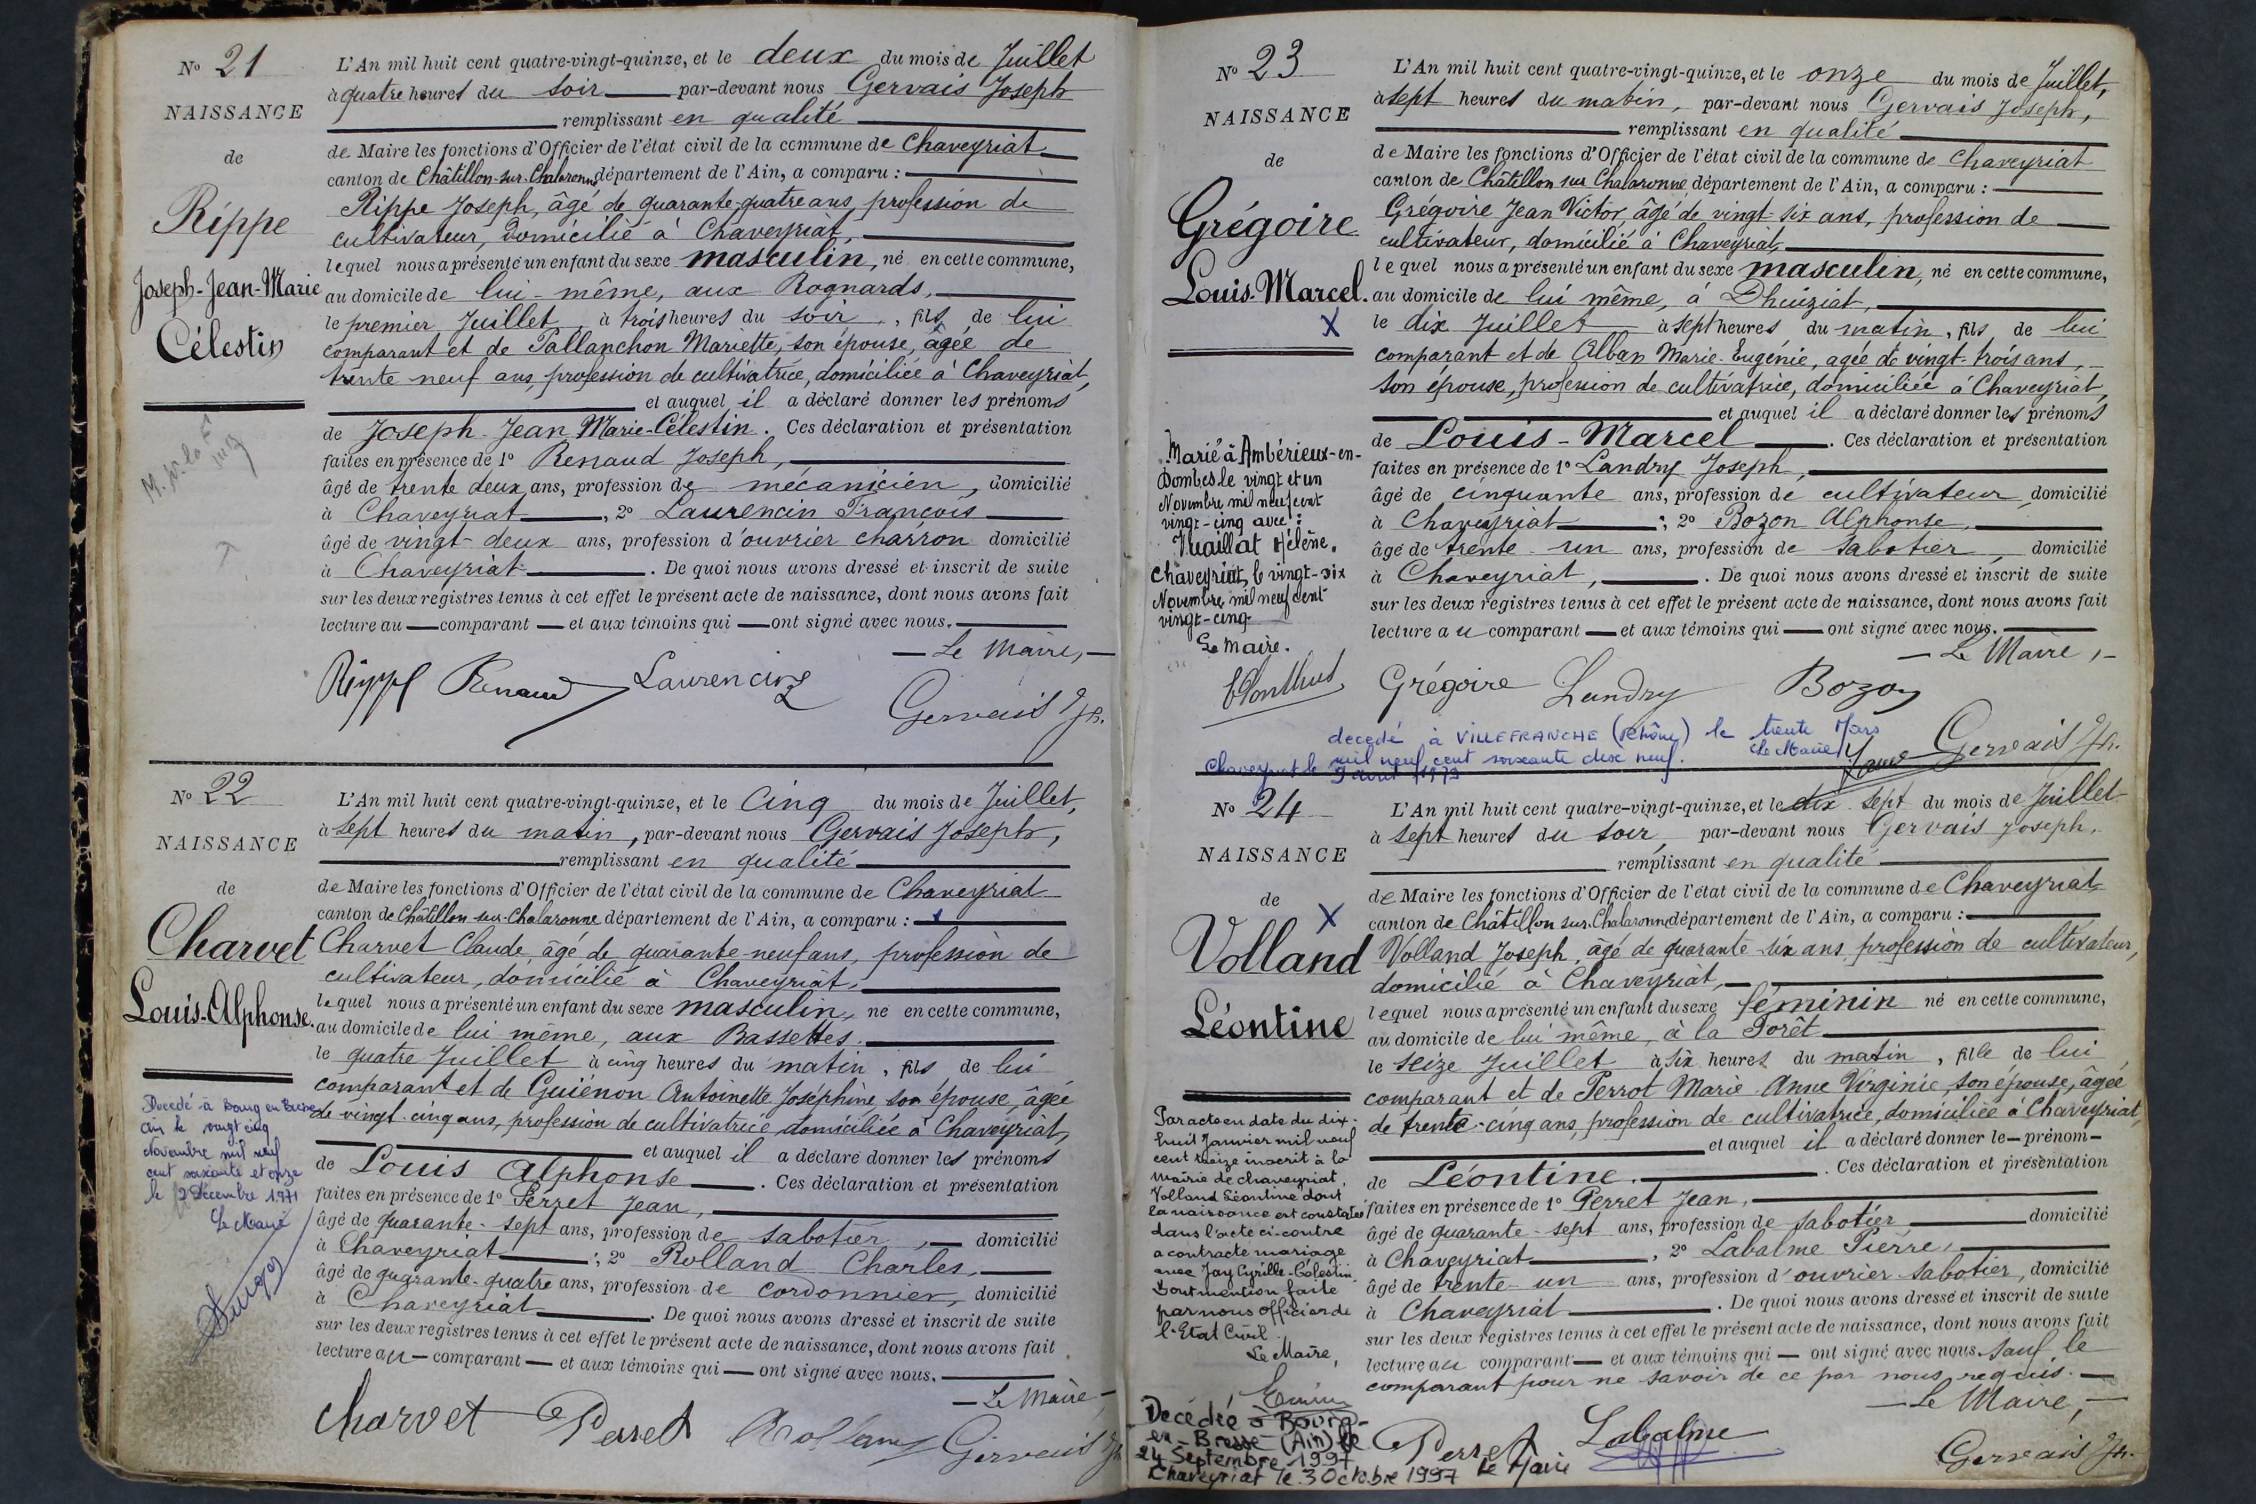 N° 21
NAISSANCE
de
Rippe
Joseph-Jean-Marie
Célestin
L'An mil huit cent quatre-vingt-quinze, et le deux du mois de Juillet
à quatre heures du soir par-devant nous Gervais Joseph
remplissant en qualité
de Maire les fonctions d'Officier de l'état civil de la commune de Chaveyriat
canton de Châtillon-sur-Chalaronne département de l'Ain, a comparu :
Rippe Joseph, âgé de quarante-quatre ans, profession de
cultivateur, domicilié à Chaveyriat,
lequel nous a présenté un enfant du sexe masculin, né en cette commune,
au domicile de lui-même, aux Rognards,
le premier Juillet à trois heures du soir, fils de lui
comparant et de Pallanchon Mariette, son épouse, âgée de
trente neuf ans, profession de cultivatrice, domiciliée à Chaveyriat,
et auquel il a déclaré donner les prénoms
de Joseph-Jean Marie-Célestin. Ces déclaration et présentation
faites en présence de 1° Renaud Joseph,
âgé de trente deux ans, profession de mécanicien, domicilié
à Chaveyriat, 2° Laurencin François
âgé de vingt-deux ans, profession d'ouvrier charron domicilié
à Chaveyriat. De quoi nous avons dressé et inscrit de suite
sur les deux registres tenus à cet effet le présent acte de naissance, dont nous avons fait
lecture au comparant et aux témoins qui ont signé avec nous.
Le Maire,
Rippe Renaud Laurencin
Gervais Jh.
N° 22
NAISSANCE
de
Charvet
Louis-Alphonse.
Décédé à Bourg en Bresse
Ain le vingt cinq
Novembre mil neuf
cent soixante et onze
le 2 Décembre 1971
Le Maire
L'An mil huit cent quatre-vingt-quinze, et le Cinq du mois de Juillet,
à sept heures du matin, par-devant nous Gervais Joseph,
remplissant en qualité
de Maire les fonctions d'Officier de l'état civil de la commune de Chaveyriat
canton de Châtillon-sur-Chalaronne département de l'Ain, a comparu :
Charvet Claude, âgé de quarante-neuf ans, profession de
cultivateur, domicilié à Chaveyriat,
lequel nous a présenté un enfant du sexe masculin, né en cette commune,
au domicile de lui même, aux Bassettes.
le quatre Juillet à cinq heures du matin, fils de lui
comparant et de Guiénon Antoinette Joséphine, son épouse, âgée
de vingt-cinq ans, profession de cultivatrice domiciliée à Chaveyriat,
et auquel il a déclaré donner les prénoms
de Louis Alphonse. Ces déclaration et présentation
faites en présence de 1° Perret Jean,
âgé de quarante-sept ans, profession de sabotier, domicilié
à Chaveyriat; 2° Rolland Charles,
âgé de quarante-quatre ans, profession de cordonnier, domicilié
à Chaveyriat. De quoi nous avons dressé et inscrit de suite
sur les deux registres tenus à cet effet le présent acte de naissance, dont nous avons fait
lecture au comparant et aux témoins qui ont signé avec nous.
Le Maire,
Charvet Perret Rolland Gervais Jh
N° 23
NAISSANCE
de
Grégoire
Louis-Marcel.
X
Marié à Ambérieux-en-
Dombes le vingt et un
Novembre mil neuf cent
vingt-cinq avec :
Vuaillat Hélène.
Chaveyriat, le vingt-six
Novembre mil neuf cent
vingt-cinq.
Le Maire.
L'An mil huit cent quatre-vingt-quinze, et le onze du mois de Juillet,
à sept heures du matin, par-devant nous Gervais Joseph,
remplissant en qualité
de Maire les fonctions d'Officier de l'état civil de la commune de Chaveyriat
canton de Châtillon sur Chalaronne département de l'Ain, a comparu :
Grégoire Jean Victor, âgé de vingt-six ans, profession de
cultivateur, domicilié à Chaveyriat,
lequel nous a présenté un enfant du sexe masculin, né en cette commune,
au domicile de lui même, à Dhuiziat,
le dix Juillet à sept heures du matin, fils de lui
comparant et de Alban Marie-Eugénie, agée de vingt-trois ans,
son épouse, profession de cultivatrice, domiciliée à Chaveyriat,
et auquel il a déclaré donner les prénoms
de Louis-Marcel. Ces déclaration et présentation
faites en présence de 1° Landry Joseph,
âgé de cinquante ans, profession de cultivateur domicilié
à Chaveyriat; 2° Bozon Alphonse,
âgé de trente-un ans, profession de sabotier, domicilié
à Chaveyriat,. De quoi nous avons dressé et inscrit de suite
sur les deux registres tenus à cet effet le présent acte de naissance, dont nous avons fait
lecture au comparant et aux témoins qui ont signé avec nous.
Le Maire,
Grégoire Landry Bozon
Gervais Jh.
decédé à VILLEFRANCHE (Rhône) le trente Mars
mil neuf cent soixante dix neuf. Le Maire
Chaveyriat le 9 avril 1979
N° 24
NAISSANCE
de
X
Volland
Léontine
Par acte en date du dix-
huit Janvier mil neuf
cent treize inscrit à la
mairie de Chaveyriat,
Volland Léontine dont
la naissance est constatée
dans l'acte ci-contre
a contracté mariage
avec Jay Cyrille-Célestin
Dont mention faite
par nous officier de
l'Etat Civil.
Le Maire,
Décédée à Bourg-
en-Bresse (Ain) le
24 Septembre 1997
Chaveyriat le 3 Octobre 1997 Le Maire
L'An mil huit cent quatre-vingt-quinze, et le dix-sept du mois de Juillet
à sept heures du soir, par-devant nous Gervais Joseph,
remplissant en qualité
de Maire les fonctions d'Officier de l'état civil de la commune de Chaveyriat
canton de Châtillon sur Chalaronne département de l'Ain, a comparu :
Volland Joseph, âgé de quarante-six ans, profession de cultivateur,
domicilié à Chaveyriat,
lequel nous a présenté un enfant du sexe féminin né en cette commune,
au domicile de lui même, à la Forêt
le seize Juillet à six heures du matin, fille de lui
comparant et de Perrot Marie-Anne Virginie, son épouse, âgée
de trente-cinq ans, profession de cultivatrice, domiciliée à Chaveyriat,
et auquel il a déclaré donner le prénom
de Léontine. Ces déclaration et présentation
faites en présence de 1° Perret Jean,
âgé de quarante-sept ans, profession de sabotier domicilié
à Chaveyriat, 2° Labalme Pierre,
âgé de trente-un ans, profession d'ouvrier sabotier, domicilié
à Chaveyriat. De quoi nous avons dressé et inscrit de suite
sur les deux registres tenus à cet effet le présent acte de naissance, dont nous avons fait
lecture au comparant et aux témoins qui ont signé avec nous. Sauf le
comparant pour ne savoir de ce par nous requis.
Le Maire,
Perret Labalme
Gervais Jh.